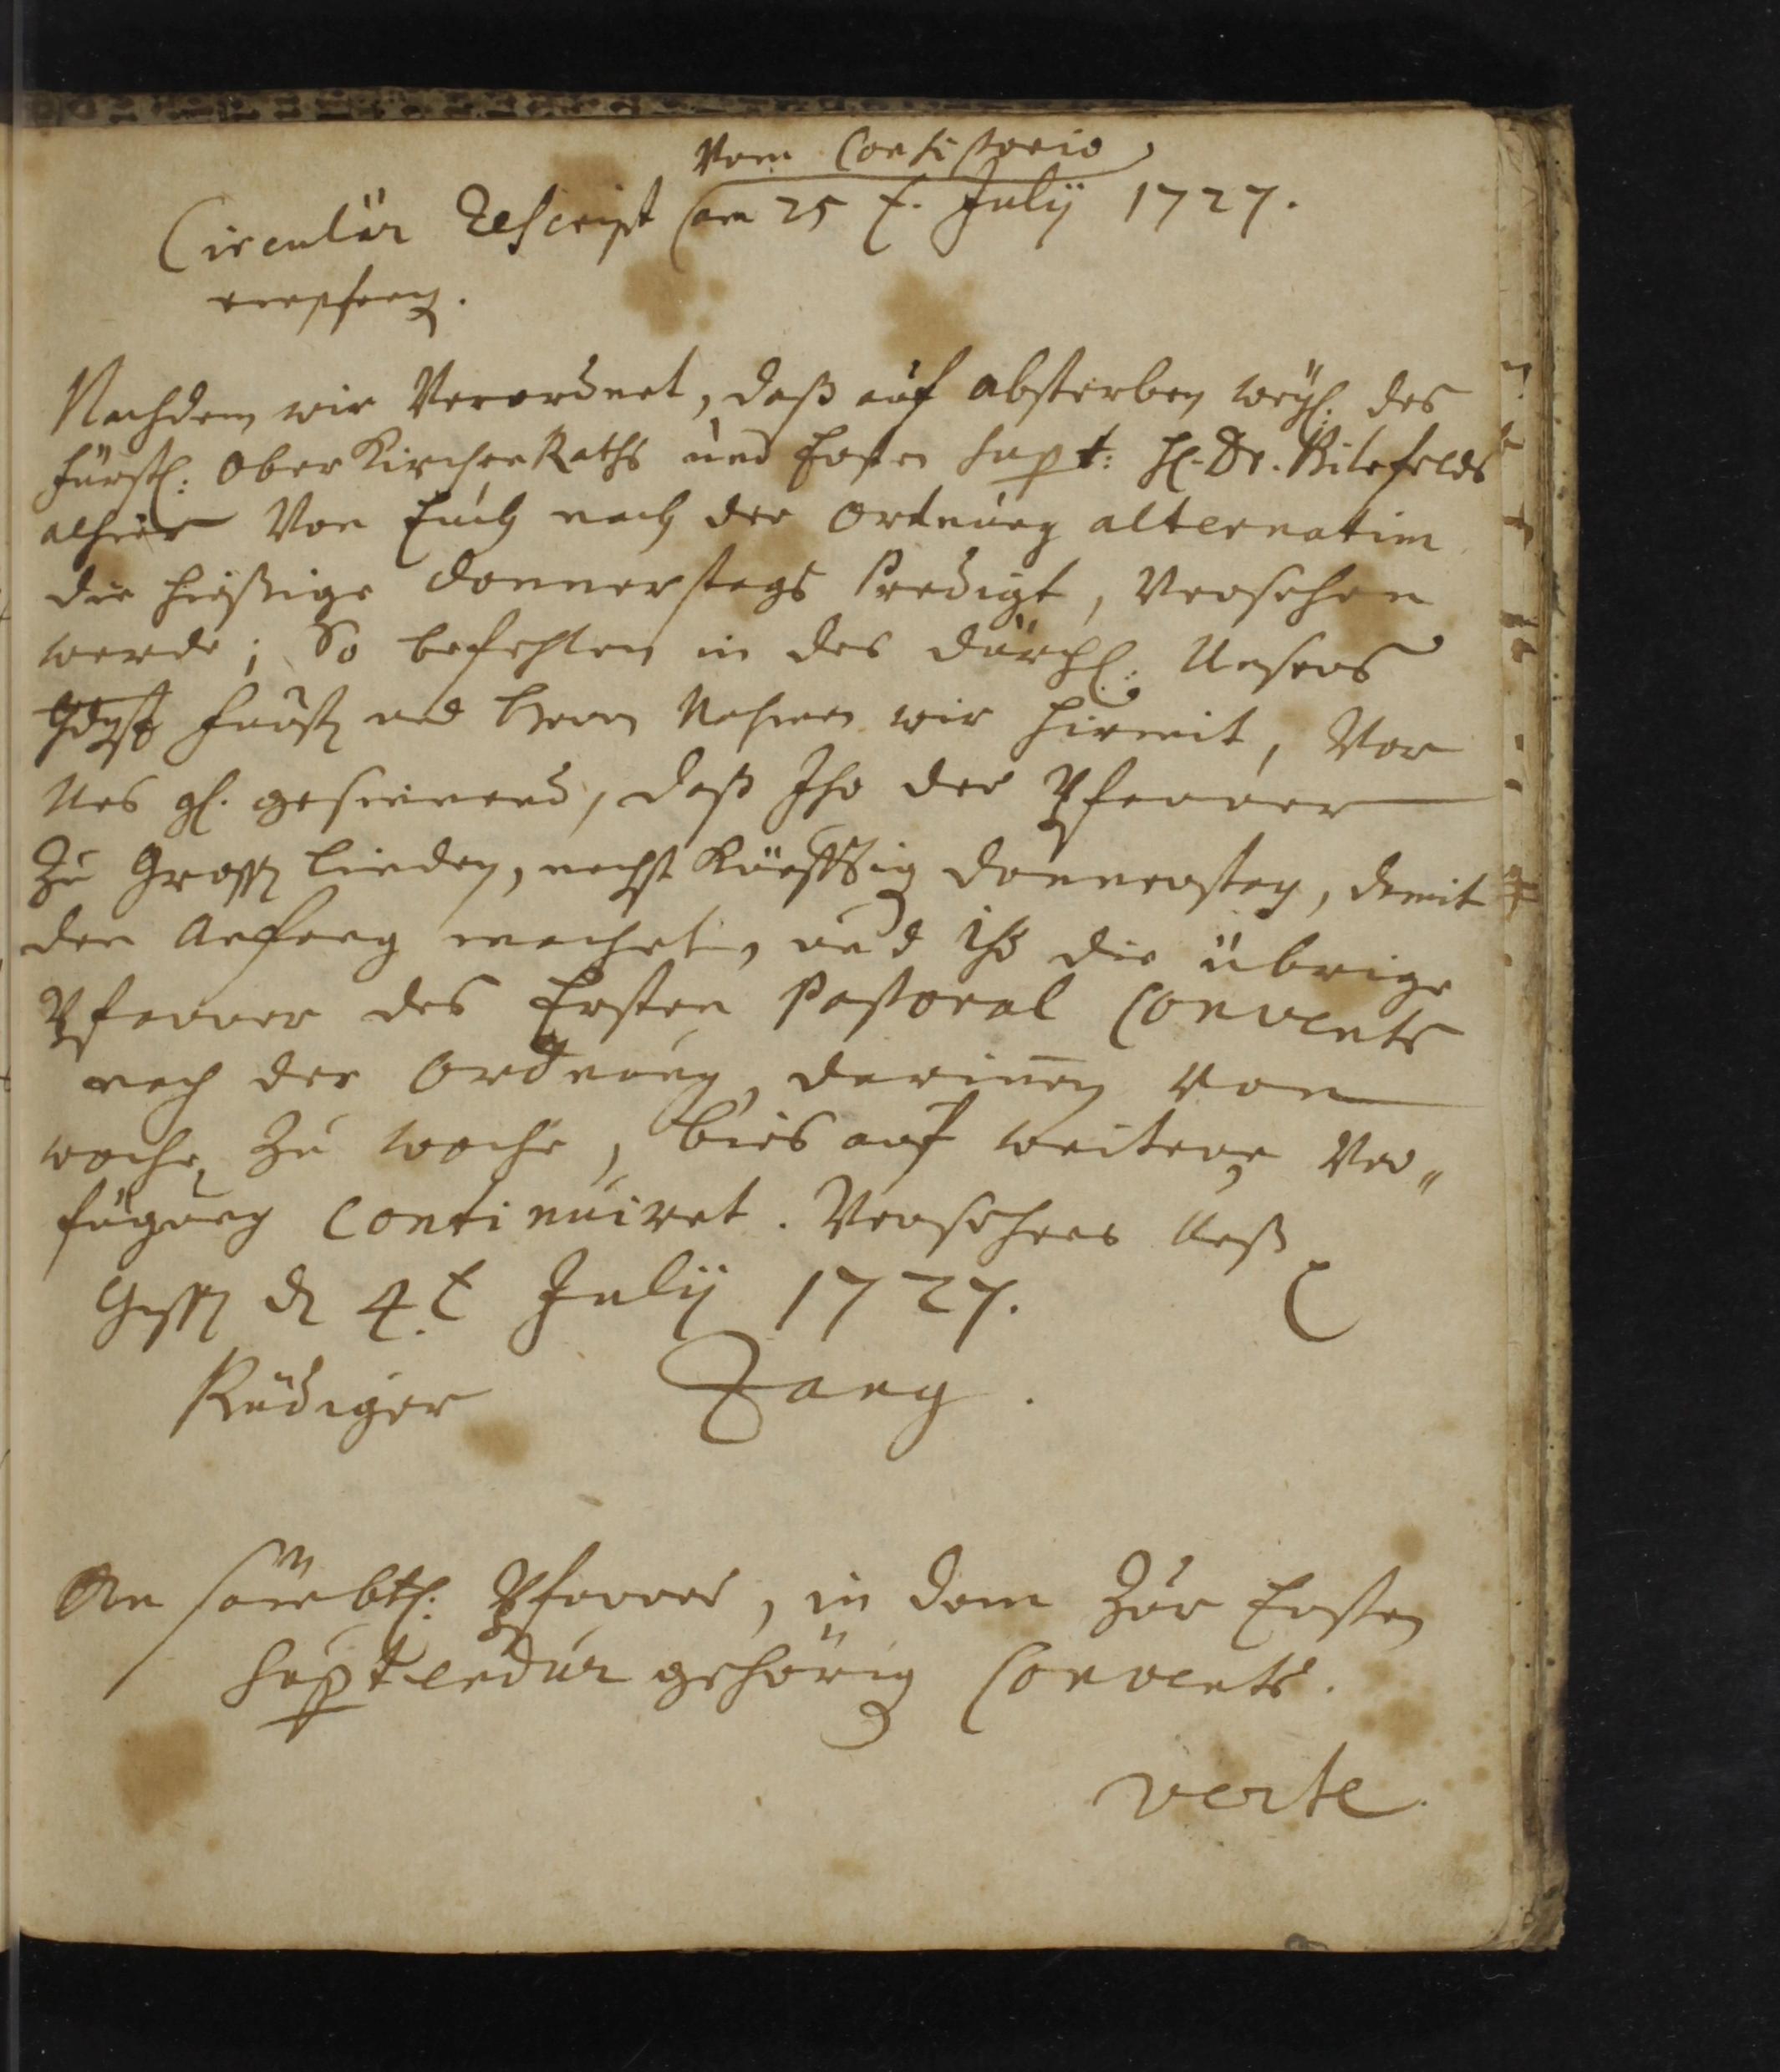 Vom Consistorio
Circular Rescript am 25 t. Julij 1727.
empfang.
Nachdem wir Verordnet, daß auf absterben weyl. des
Fürstl: Ober Kirchen Raths und Ersten Supt: H. Dr. Bilefelds
alhier Von Euch nach der Ordnung alternatim
die hießige Donnerstags Predigt, Versehen
werde; So befehlen in des Durchl: Unsers
Gdgst Fürst und Herrn Nahmen wir hiermit, Vor
Uns gl. gesinnend, daß Ihr der Pfarrer
Zu Grossen Linden, nechst Künfftig Donnerstag, damit
den Anfang machet, und Ihr die übrige
Pfarrer des Ersten Pastoral Convents
nach der Ordnung, darinnen von
woche Zu woche, bies auf weitere Ver„
fügung continuiret. Versehens Unß
Giessen d 4. t Julij 1727.
Rüdiger Zang.
An sämbtl: Pfarrer, in dem Zur Ersten
Suptendur gehörig Convents.
verte.